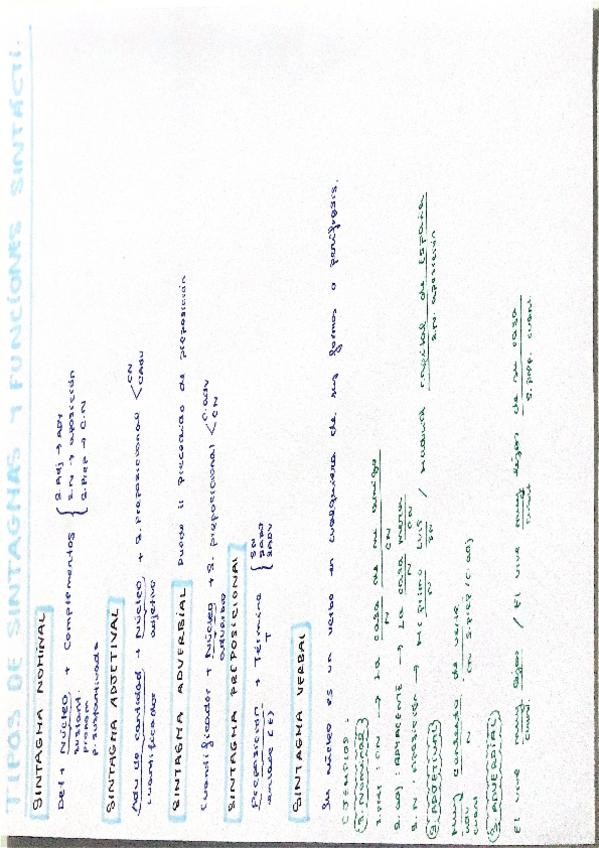 TIPOS DE SINTAGMAS Y FUNCIONES SINTÁCTI.
SINTAGMA NOMINAL
Det + Núcleo + Complementos { S. Adj → ADY
sustant. S.N → aposición
pronom S. Prep → C.N
p. sustantivada
SINTAGMA ADJETIVAL
Adv de cantidad + Núcleo + S. Preposicional < CN
cuantificador adjetivo CADV
SINTAGMA ADVERBIAL Puede ir precedido de preposición
Cuantificador + Núcleo + S. preposicional < C. adv
adverbio CN
SINTAGMA PREPOSICIONAL
Preposición + Término { SN
enlace (E) T SADJ
SADV
SINTAGMA VERBAL
Su núcleo es un verbo en cualquiera de sus formas o perífrasis.
EJEMPLOS:
S. NOMINAL
S. prep : CN → La casa de mi amigo
N CN
S. adj : ADYACENTE → La casa nueva
N CN
S. N : APOSICIÓN → Mi primo Luis / Madrid capital de España
N SN S.N. aposición
S. ADJETIVAL
Muy contento de verte
adv N CN S.prep / C. adj
cuant
S. ADVERBIAL
El vive muy lejos / El vive muy lejos de su casa
cuant. cuant S. prep. cuant.